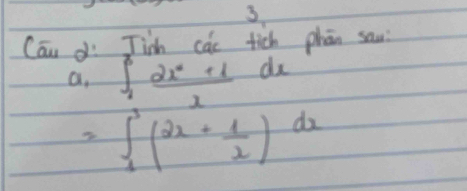 3
Câu 2: Tính các tích phân sau:
a. ∫₁³ (2x² + 1)/x dx
= ∫₁³ (2x + 1/x) dx